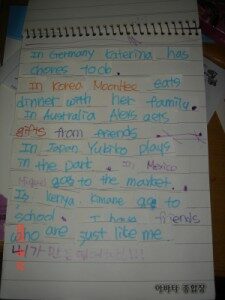 In Germany Katerina has
chores to do.
In Korea Moonhee eats
dinner with her family.
In Australia Alexis gets
gifts from friends
In Japan Yukiko plays
in the park. In Mexico
Miguel goes to the market.
In kenya, Kimane go to
school. I have friends
who are just like me.
아바타 종합장